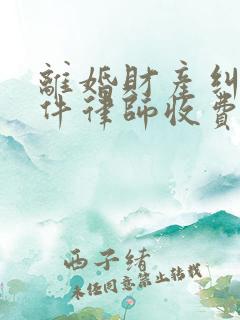 離婚財產糾
件律師收費
西子緒
未经同意禁止转载